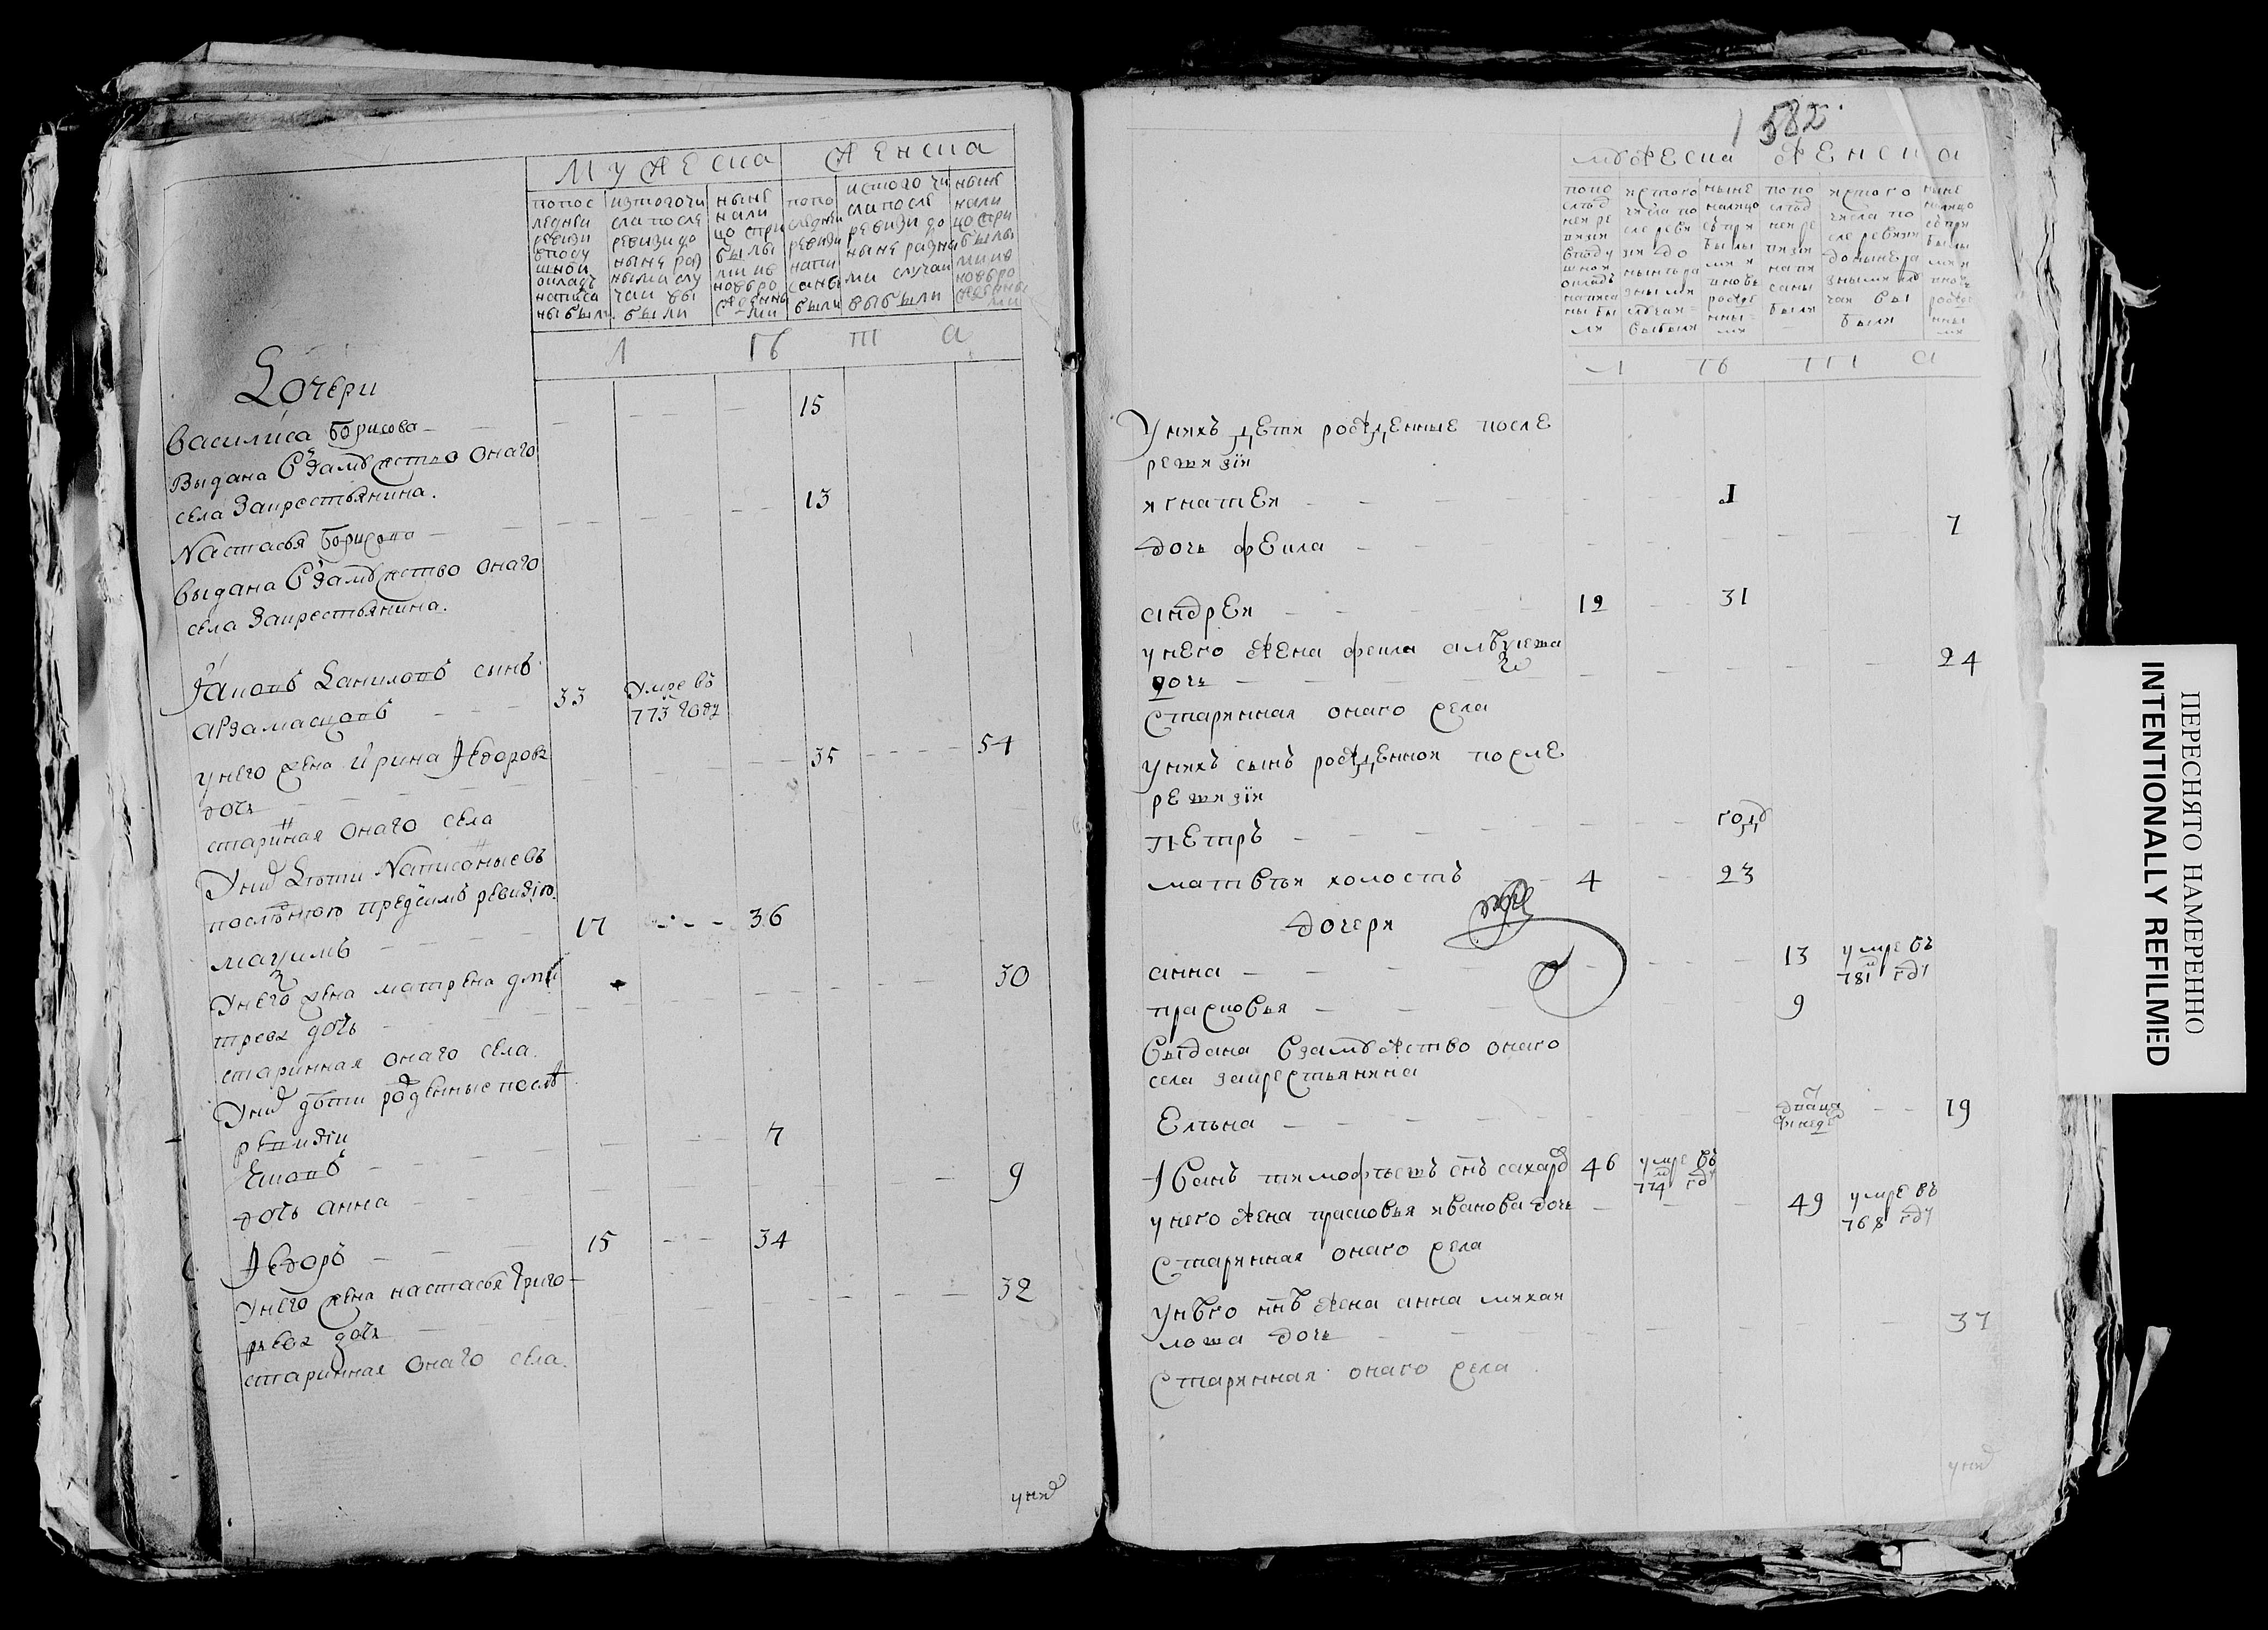 МУЖЕСКА ЖЕНСКА
попос ледней ревизи вподу шной окладъ написа ны были
изтогочи сла после ревизи до ныне раз ными слу чаи вы были
ныне нали цо спри былы ми ив новьро жденны ми
попо следнеи ревизи напи саны были
истого чи сла после ревизи до ныне разны ми случаи выбыли
ныне нали цо спри былы ми ив новьро жденны ми
Л ѣ т а
Дочери
Василиса Борисова 15
Выдана Взамужство Онаго
села Закрестьянина.
Настасья Борисова 13
Выдана Взамужство онаго
села Закрестьянина.
Яковъ Даниловъ сынъ
арзамасцовъ 33 Умре въ 773 году
унего жена Ирина Федорова
дочь 35 54
старинная онаго села
Уних дѣти Написаные въ
последнюю предсимъ ревизию
мазимъ 17 36
Унего жена матрена дми
трева дочь 30
старинная онаго села.
Уних дѣти рожденные послѣ
ревизии
Яковъ 7
дочь анна 9
Федоръ 15 34
Унего жена настасья Григо
рьева дочь 32
старинная Онаго села.
уних
582
мужеска женска
попо слѣд ней ре визіи вподу шной окладъ написа ны бы ли
изтого числа по сле реви зіи до ныне ра зными случаи выбыли
ныне налицо съпри былы ми и вновь рожде нны ми
попо слѣд ней ре визіи напи саны были
изтого числа по сле ревизіи до ныне ра зными слу чаи вы были
ныне налицо съпри былы ми и вновь рожде нны ми
Л ѣ т а
Унихъ дети рожденные после
ревизіи
игнатеи 1
дочь фекла 7
андреи 12 31
унего жена фекла алѣѯеева
дочь 24
Старинная онаго села
Унихъ сынъ рожденнои после
ревизіи
петръ годъ
матвѣи холостъ 4 23
дочери
анна 13 умре въ 781м году
прасковья 9
Выдана Взамужство онаго
села закрестьянина
Елѣна 19
Иванъ тимофѣевъ снъ сахаро 46 умре въ 774м году
унего жена прасковья иванова дочь 49 умре въ 768 году
Старинная онаго села
Унѣго ннѣ жена анна михаи
лова дочь 37
Старинная онаго села
уних
ПЕРЕСНЯТО НАМЕРЕННО
INTENTIONALLY REFILMED